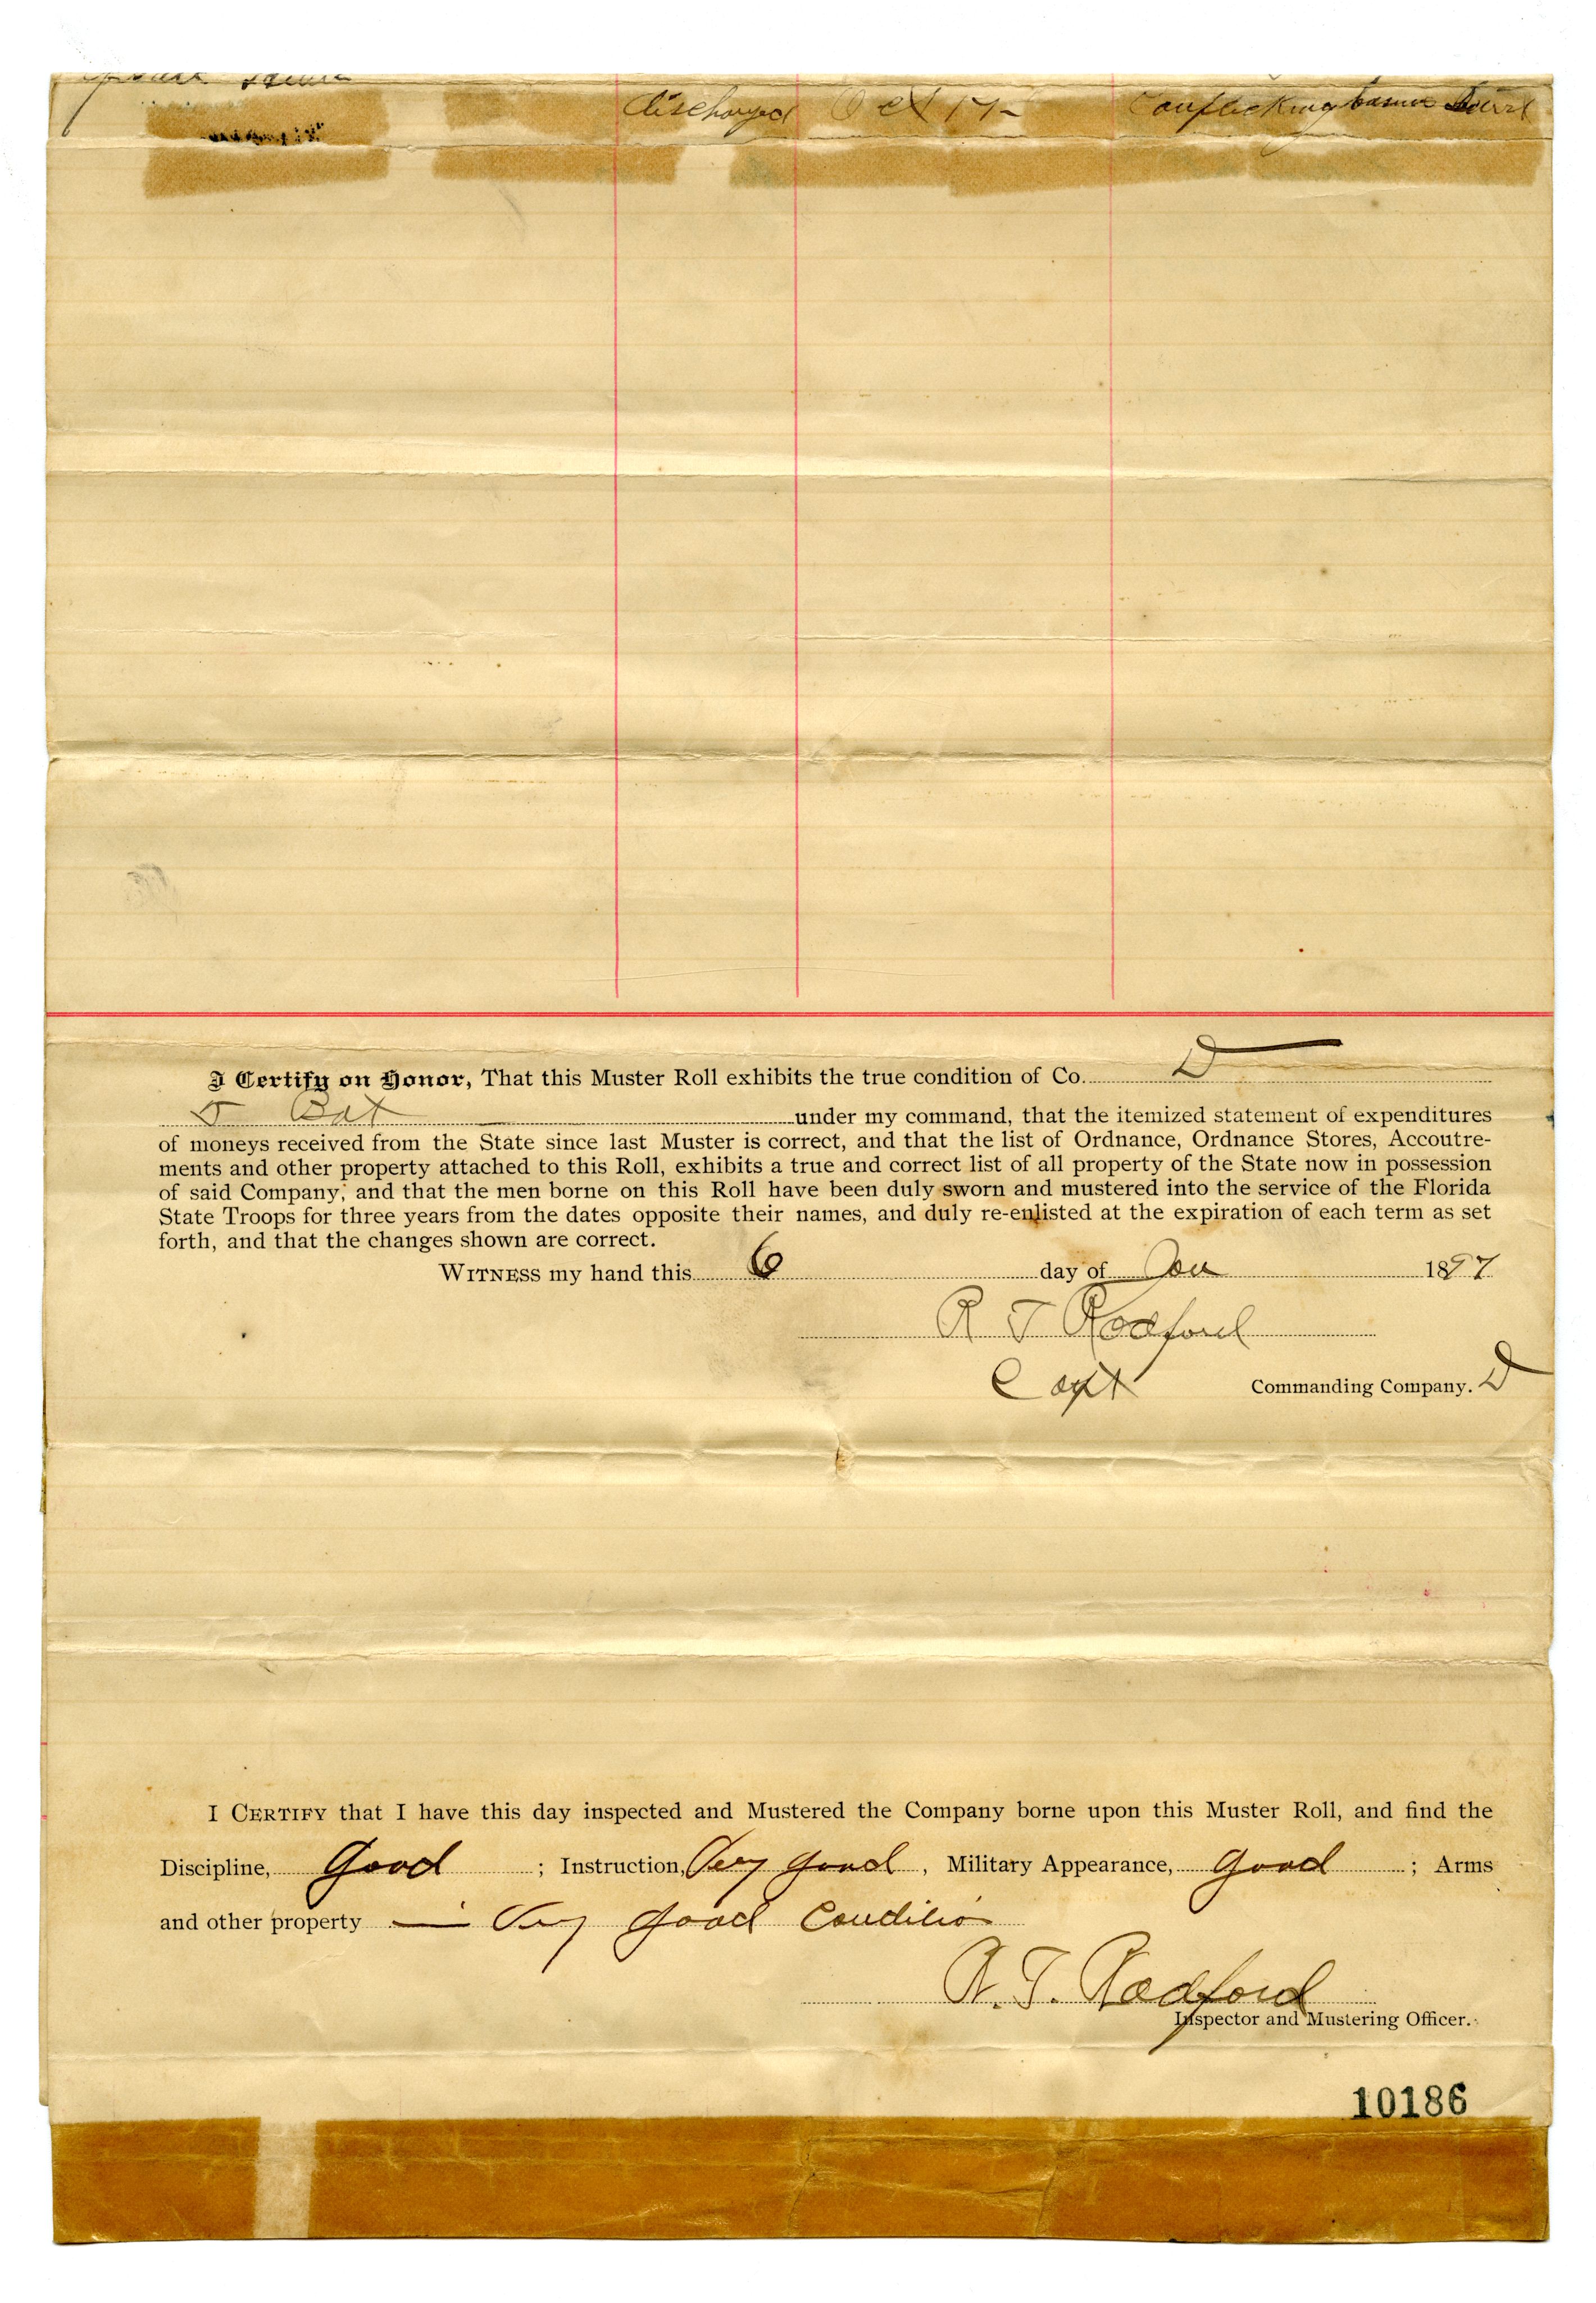 discharged Oct 17 - Conflicking
I Certify on Honor, That this Muster Roll exhibits the true condition of Co. D
5 Bat under my command, that the itemized statement of expenditures
of moneys received from the State since last Muster is correct, and that the list of Ordnance, Ordnance Stores, Accoutre-
ments and other property attached to this Roll, exhibits a true and correct list of all property of the State now in possession
of said Company, and that the men borne on this Roll have been duly sworn and mustered into the service of the Florida
State Troops for three years from the dates opposite their names, and duly re-enlisted at the expiration of each term as set
forth, and that the changes shown are correct.
WITNESS my hand this 6 day of Jan 1897
R T Radford
Capt Commanding Company. D
I CERTIFY that I have this day inspected and Mustered the Company borne upon this Muster Roll, and find the
Discipline, Good ; Instruction, Very good , Military Appearance, Good ; Arms
and other property — Very good Condition
R. T. Radford
Inspector and Mustering Officer.
10186